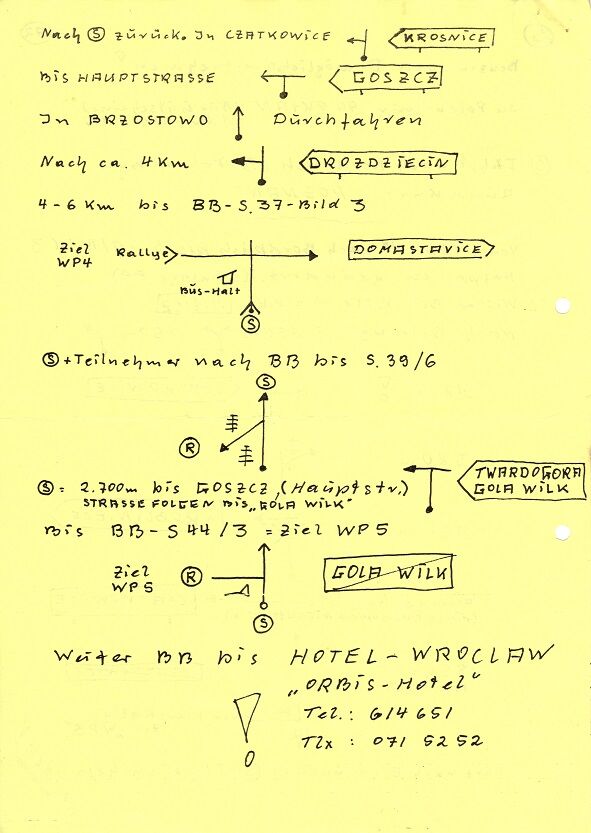 Nach Ⓢ zurück. In CZATKOWICE KROSNICE
BIS HAUPTSTRASSE GOSZCZ
In BRZOSTOWO Durchfahren
Nach ca. 4 Km DROZDZIECIN
4-6 Km bis BB-S.37-Bild 3
Ziel WP4 Rallye DOMASTAVICE
Bus-Halt
Ⓢ
Ⓢ+Teilnehmer nach BB bis S.39/6
Ⓢ
Ⓡ
TWARDOGORA
GOLA WILK
Ⓢ= 2.700m bis GOSZCZ, (Hauptstr.)
STRASSE FOLGEN BIS „GOLA WILK"
Bis BB-S 44/3 = Ziel WP5
Ziel WP5 Ⓡ GOLA WILK
Ⓢ
Weiter BB bis HOTEL-WROCLAW
„ORBIS-Hotel"
Tel.: 614651
Tlx : 071 5252